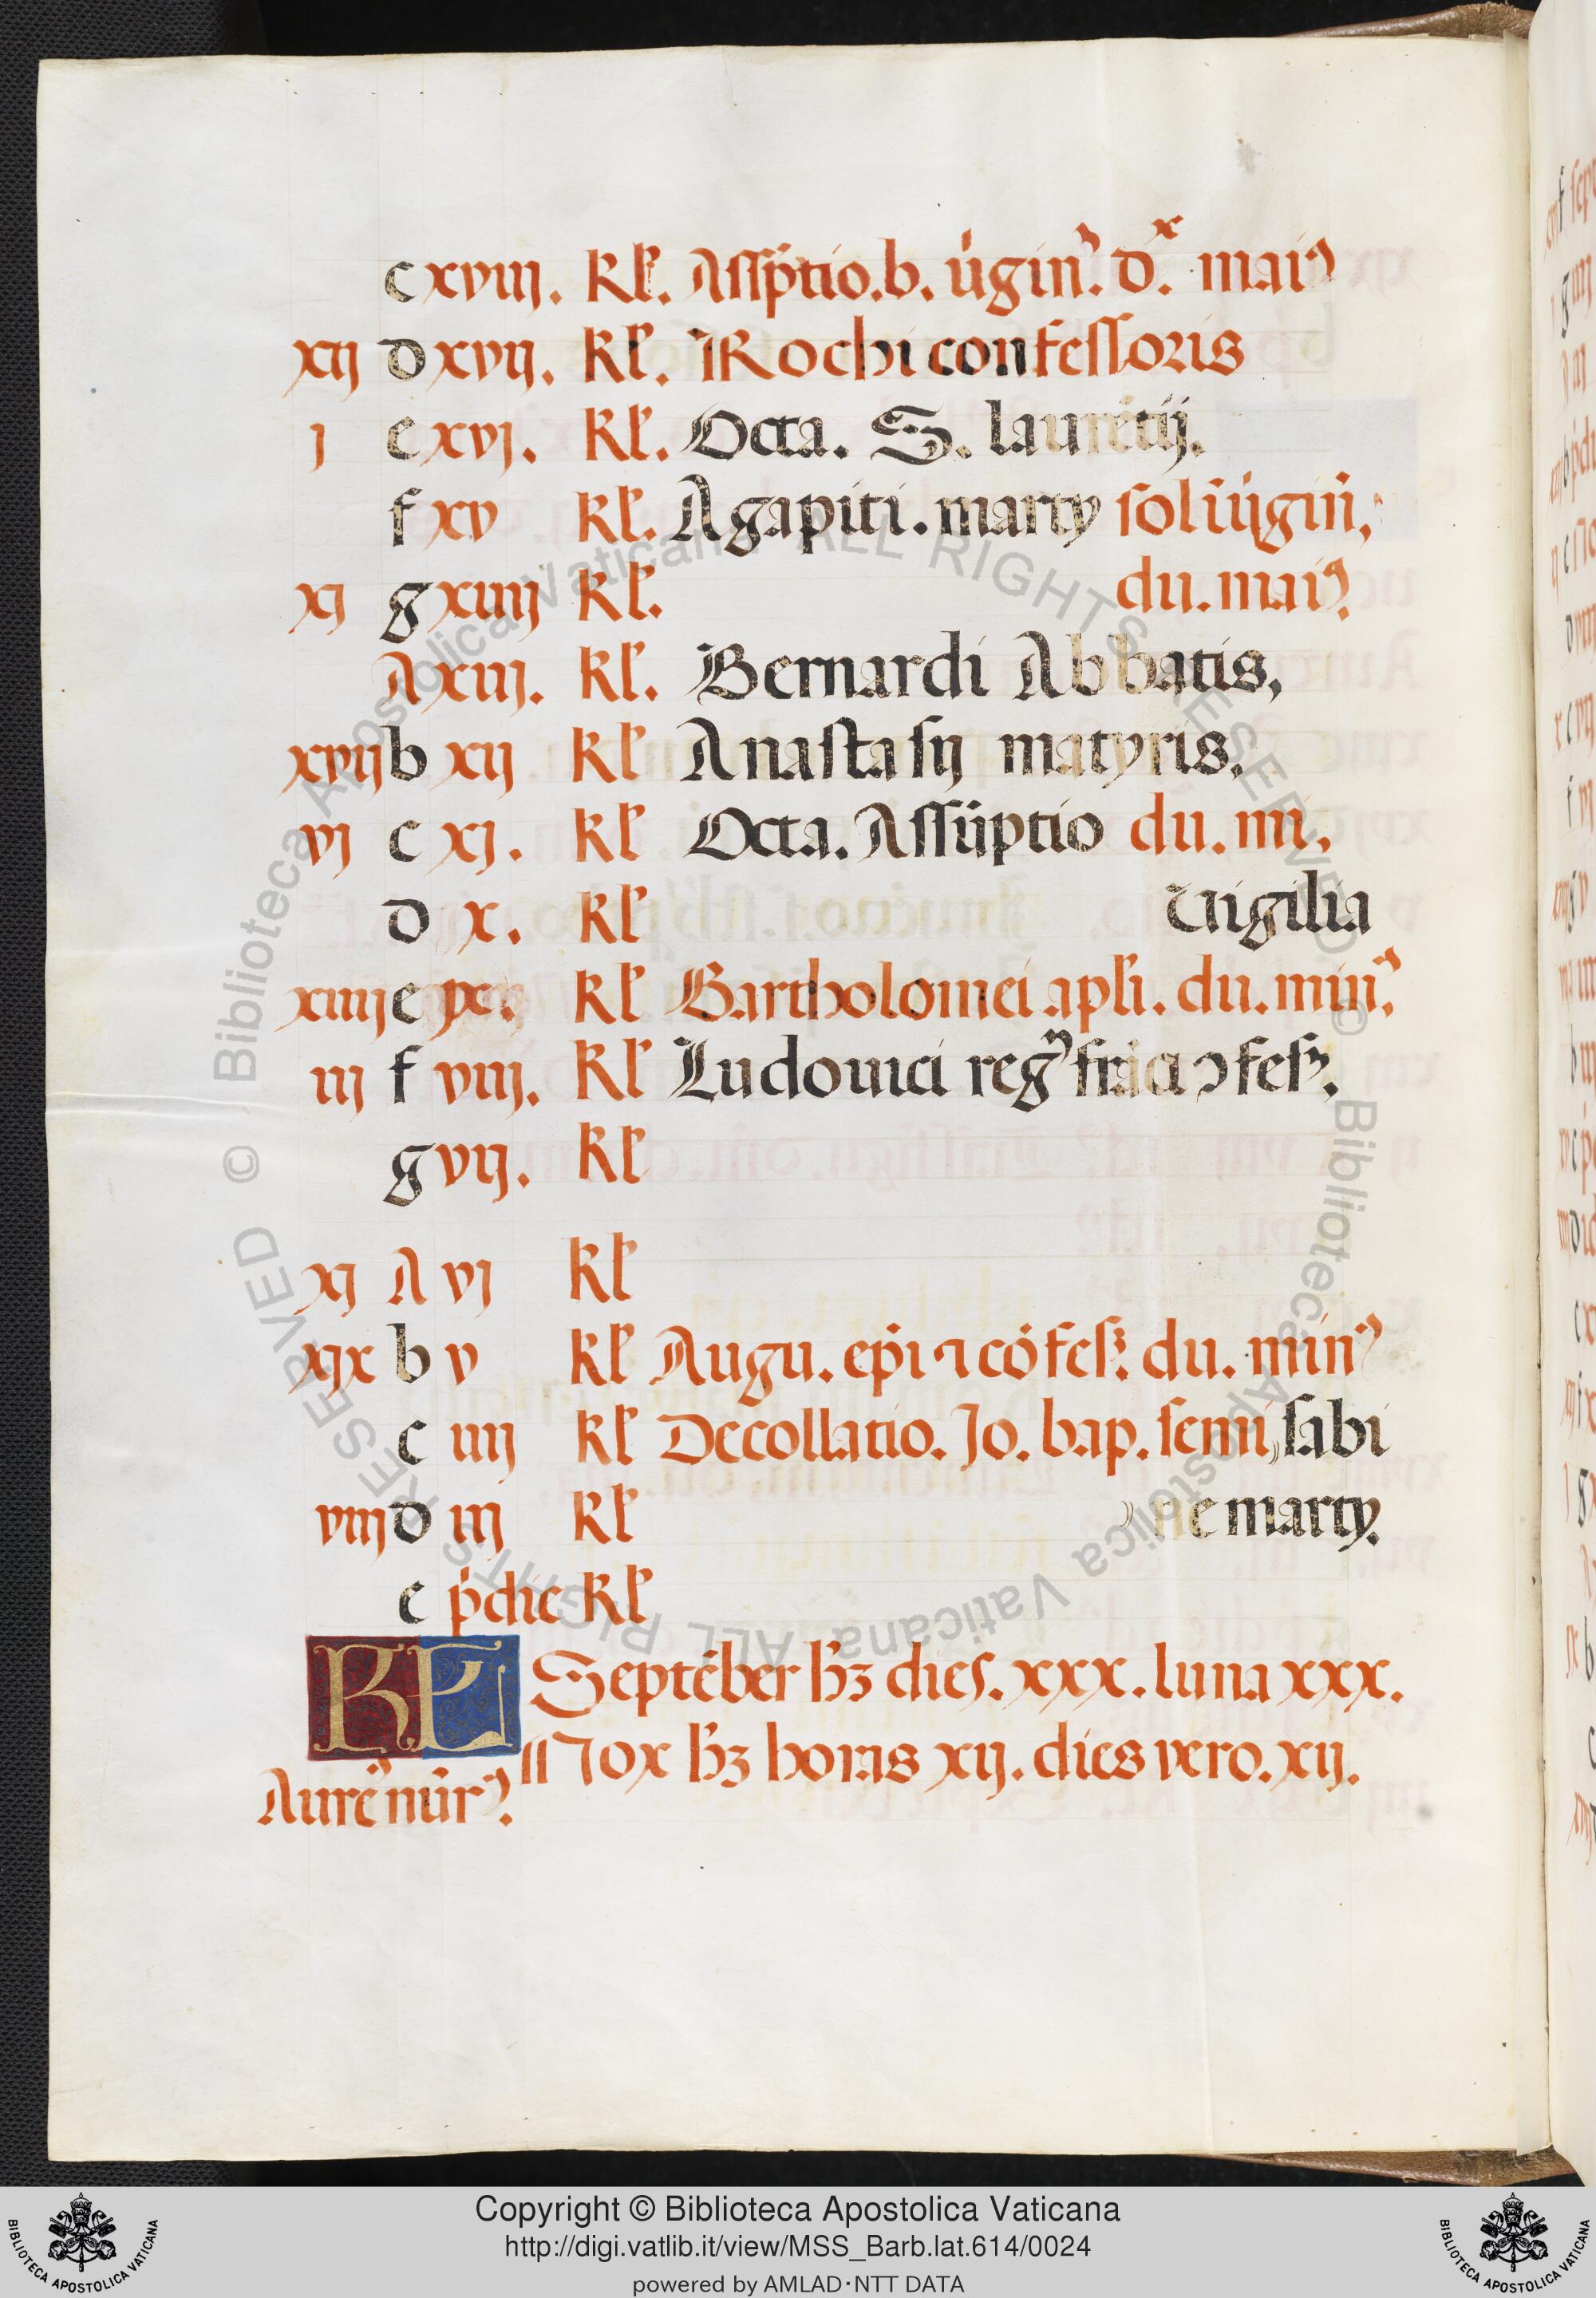 c xviij. kl. Assũptio. b. v̓gin̓. dx. mai⁹
xij d xvij. kl. Rochi confessoris
j e xvj. kl. Octa. S. laurẽtij.
f xv kl. Agapiti. marty
xj g xiiij kl. du. mai⁹.
A xiij. kl. Bernardi Abbatis,
xvij b xij kl Anastasij matyris.
vj c xj. kl Octa. Assũptio du. mi,
d x. kl Vigilia
xiiij e jx. kl Bartholomei apl̃i. du. min⁹.
iij f viij. kl Ludouici reg⁹ frãci ɔfess.
g vij. kl
xj A vj kl
xjx b v kl Augu. ep̃i ⁊ cõfess. du. min⁹
c iiij kl Decollatio. Jo. bap. semi, sabi
viij d iij kl ne marty.
e p̃die kl
KL Septẽber hꝫ dies. xxx. luna xxx.
Nox hꝫ horas xij. dies vero. xij.
Aure⁹ nũr⁹.
© Biblioteca Apostolica Vaticana ALL RIGHTS RESERVED © Biblioteca Apostolica Vaticana ALL RIGHTS RESERVED
Copyright © Biblioteca Apostolica Vaticana
http://digi.vatlib.it/view/MSS_Barb.lat.614/0024
powered by AMLAD·NTT DATA
BIBLIOTECA APOSTOLICA VATICANA
BIBLIOTECA APOSTOLICA VATICANA